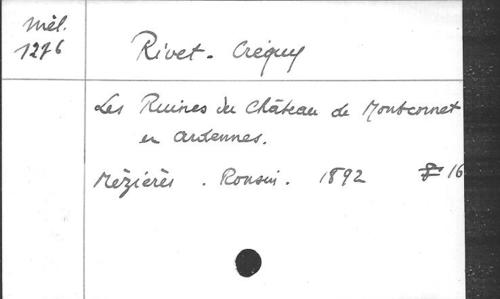 Mél.
1276
Rivet-Créquy
Les Ruines du Château de Montcornet
en Ardennes.
Mézières. Ronsin. 1892 16